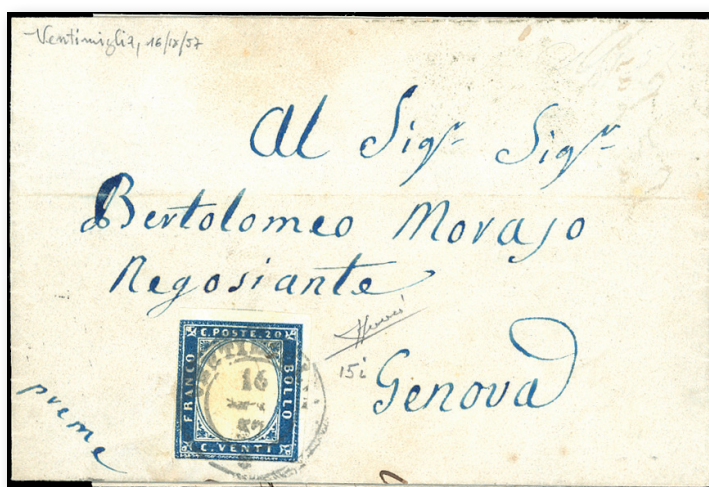 Ventimiglia, 16/IX/57
Al Sigr. Sigr.
Bertolomeo Morajo
Negosiante
Genova
15i
preme
C. POSTE. 20
FRANCO
BOLLO
C. VENTI
16